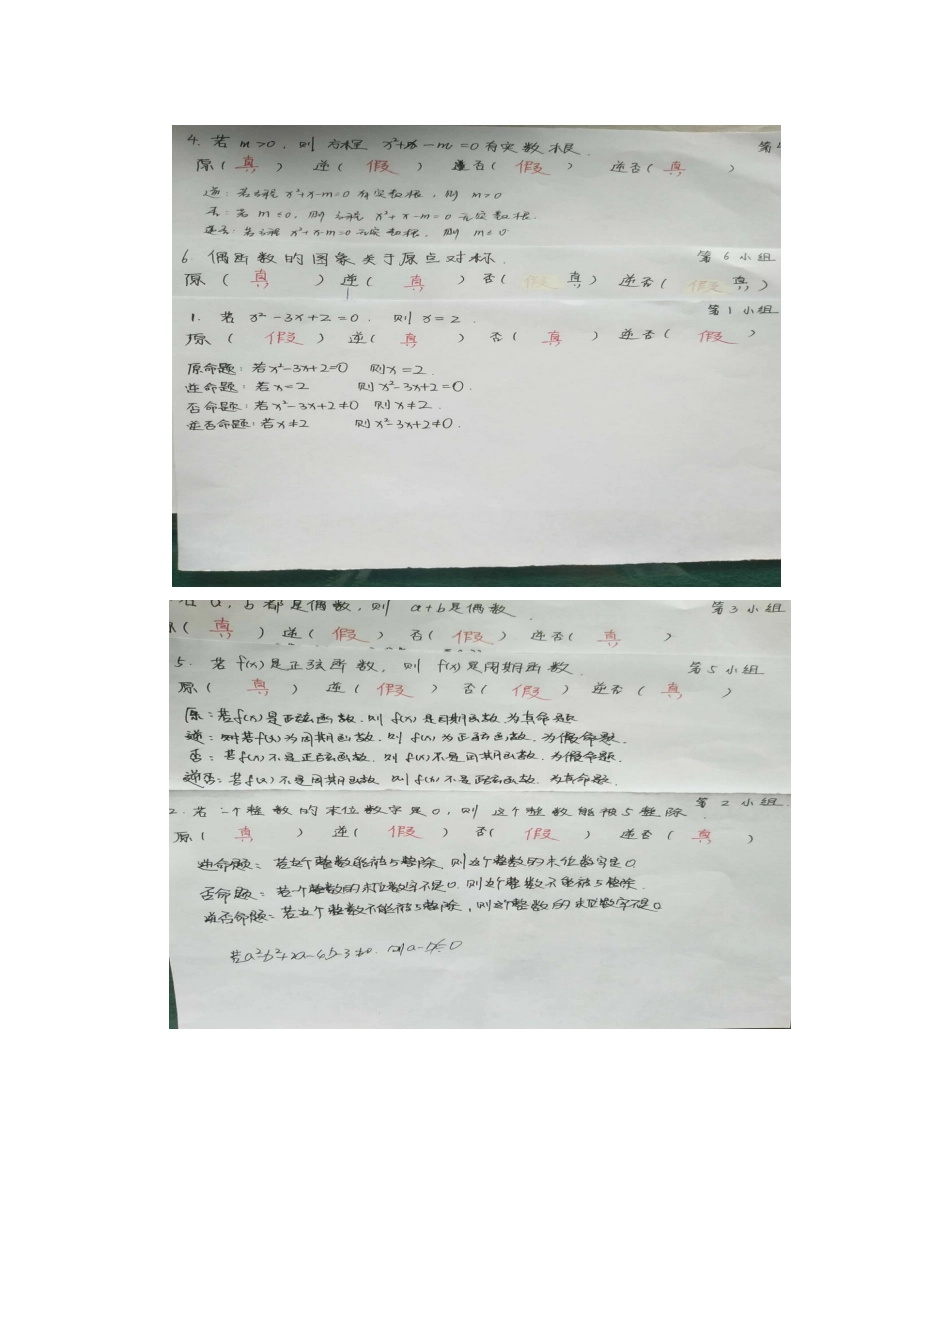 4. 若 m>0, 则 方程 x²+x-m=0 有实数根. 第4
原(真) 逆(假) 否(假) 逆否(真)
逆: 若方程 x²+x-m=0 有实数根, 则 m>0
否: 若 m≤0, 则 方程 x²+x-m=0 无实数根.
逆否: 若方程 x²+x-m=0 无实数根, 则 m≤0
6. 偶函数的图象关于原点对称. 第6小组
原(真) 逆(真) 否(假 真) 逆否(假 真)
1. 若 x²-3x+2=0, 则 x=2. 第1小组
原(假) 逆(真) 否(真) 逆否(假)
原命题: 若x²-3x+2=0 则x=2.
逆命题: 若x=2 则x²-3x+2=0.
否命题: 若x²-3x+2≠0 则x≠2.
逆否命题: 若x≠2 则x²-3x+2≠0.
若 a, b都是偶数, 则 a+b是偶数. 第3小组
(真) 逆(假) 否(假) 逆否(真)
5. 若 f(x)是正弦函数, 则 f(x)是周期函数. 第5小组
原(真) 逆(假) 否(假) 逆否(真)
原: 若f(x)是正弦函数, 则 f(x)是周期函数. 为真命题
逆: 若f(x)为周期函数, 则 f(x)为正弦函数. 为假命题.
否: 若f(x)不是正弦函数, 则 f(x)不是周期函数. 为假命题.
逆否: 若f(x)不是周期函数, 则 f(x)不是正弦函数. 为真命题.
2. 若一个整数的末位数字是0, 则 这个整数能被5整除. 第2小组
原(真) 逆(假) 否(假) 逆否(真)
逆命题: 若这个整数能被5整除, 则这个整数的末位数字是0
否命题: 若一个整数的末位数字不是0, 则这个整数不能被5整除.
逆否命题: 若这个整数不能被5整除, 则这个整数的末位数字不是0